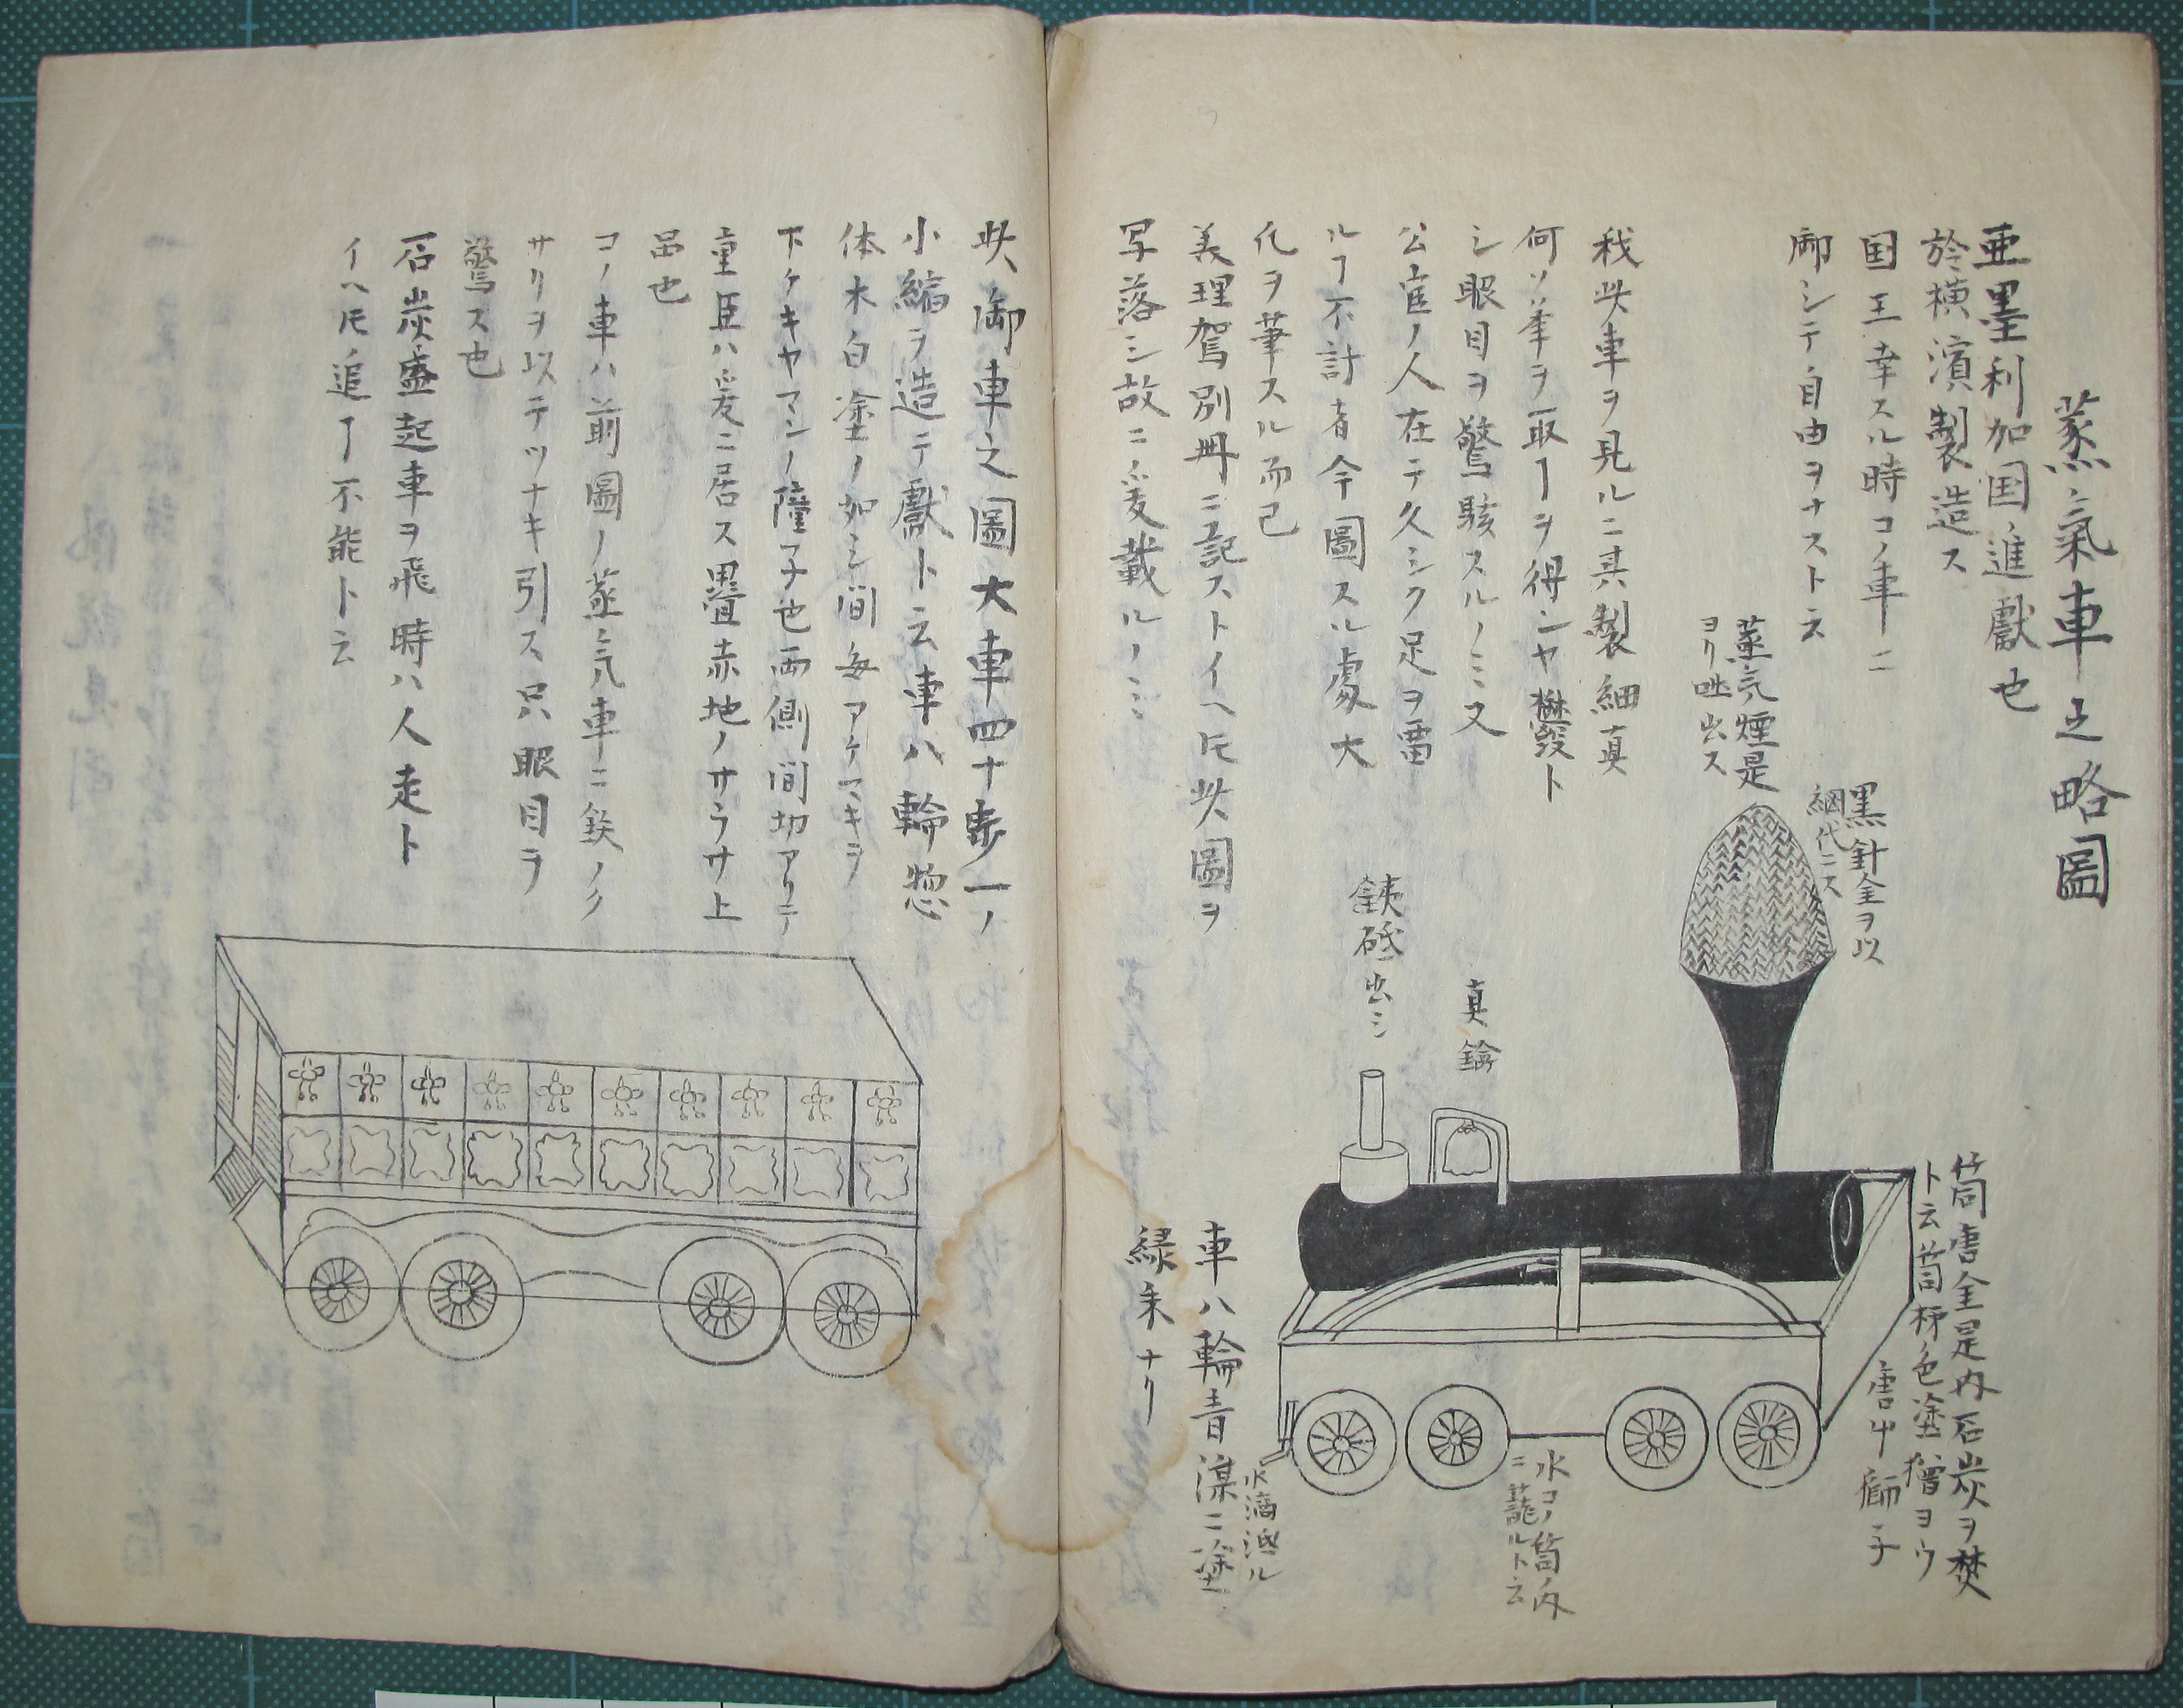 蒸氣車之略圖
亜墨利加国進獻也
於横濱製造ス
国王幸スル時コノ車ニ
御シテ自由ヲナスト云
我此車ヲ見ルニ其製細真
何ソ筆ヲ取ヿヲ得ンヤ ト
シ眼目ヲ驚駭スルノミ又
公官ノ人在テ久シク足ヲ畱
ルヿ不計者今圖スル處大
化ヲ筆スル而己
美理駕別冊ニ記ストイヘ𪜈此圖ヲ
写落シ故ニ爰載ルノミ
蒸気煙是
ヨリ吐出ス
黒針金ヲ以
網代ニス
真鍮
鉄 出シ
筒唐金是内石炭ヲ焚
ト云筒柿色塗 ヨウ
唐中 子
水コノ筒ノ内
ニ籠ルト云
水滴迯ル
車八輪青漆ニ塗
緑朱ナリ
此御車之圖大車四十歩一ノ
小縮ヲ造テ獻ト云車八輪惣
体木白塗ノ如シ間毎アケマキヲ
下ケキヤマンノ障子也両側間切アリテ
重臣ハ爰ニ居ス疊赤地ノサラサ上
品也
コノ車ハ前圖ノ蒸気車ニ鉄ノク
サリヲ以テツナキ引ス只眼目ヲ
驚ス也
石炭盛起車ヲ飛時ハ人走ト
イヘ𪜈追ヿ不能ト云